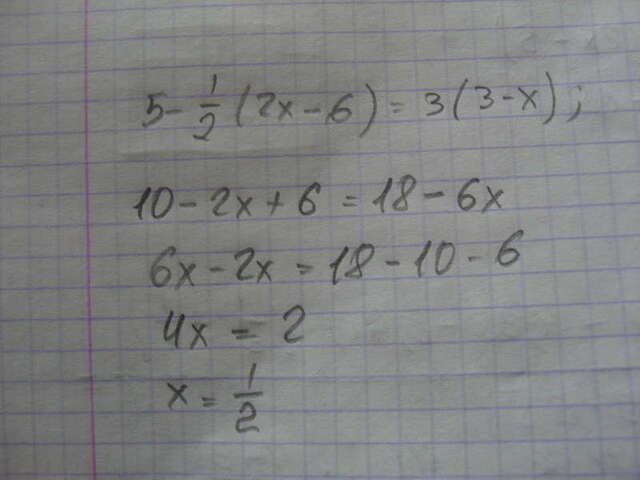 5-1/2(2x-6)=3(3-x);
10-2x+6=18-6x
6x-2x=18-10-6
4x=2
x=1/2